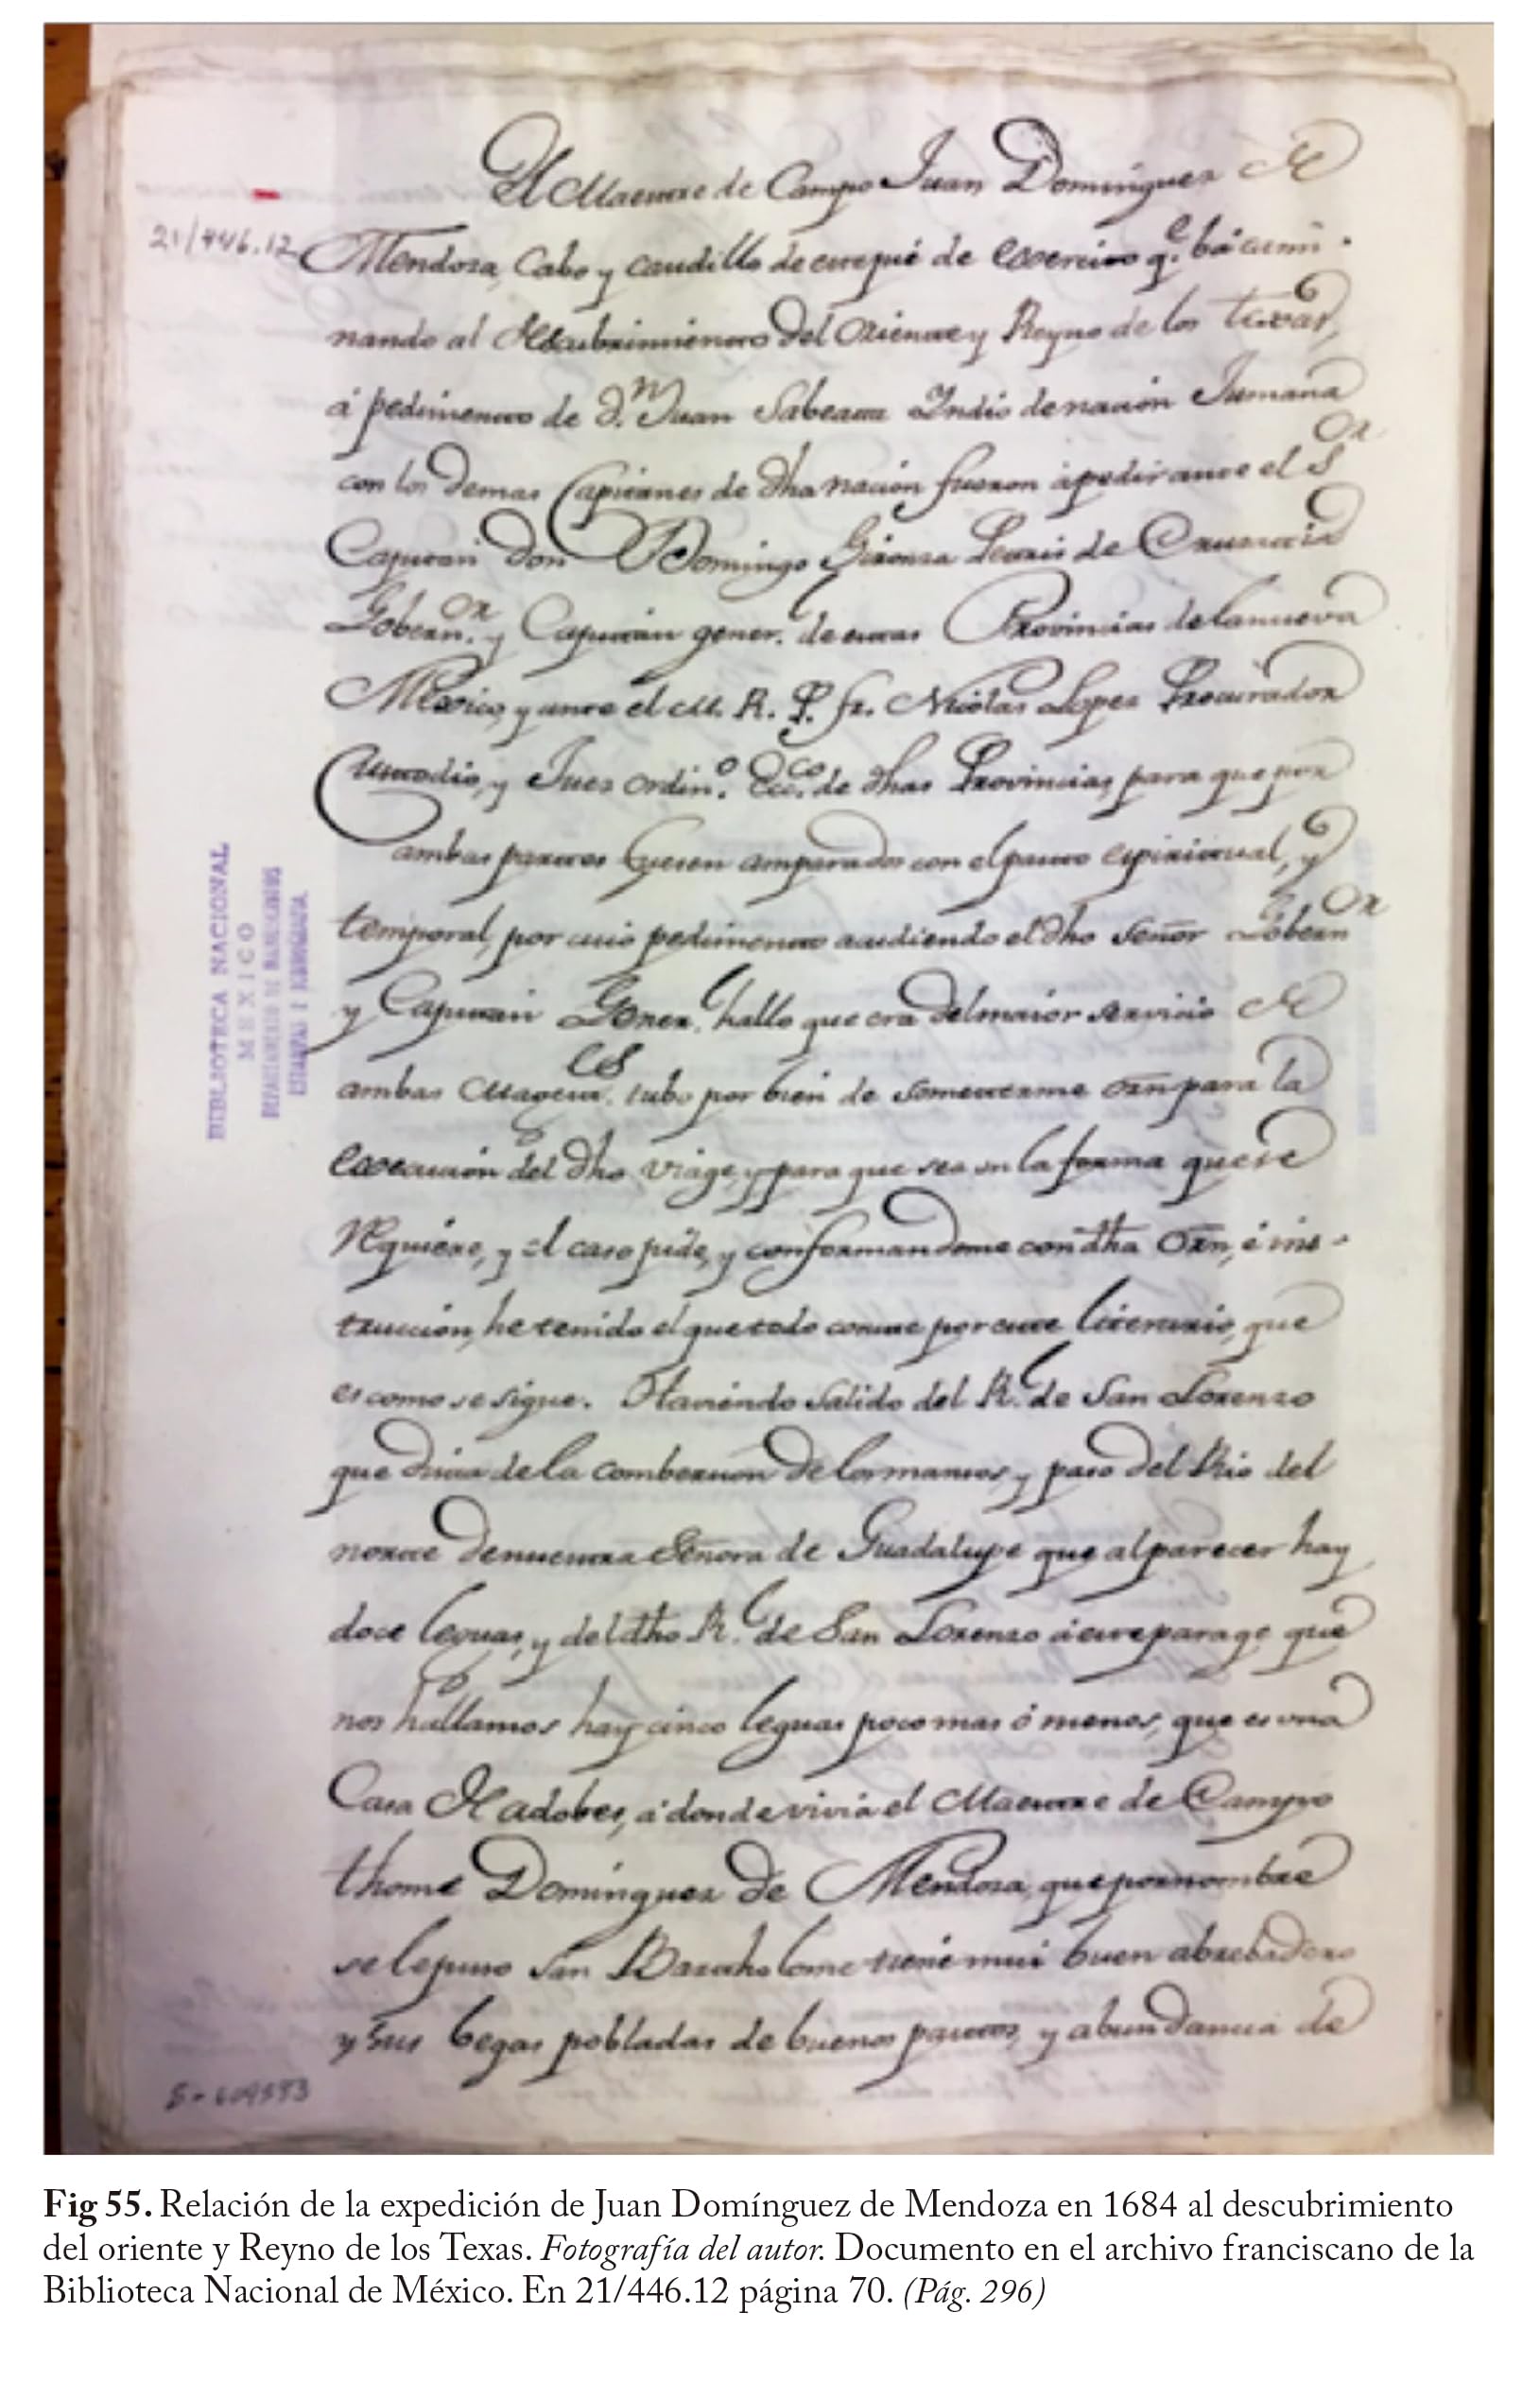 El Maestre de Campo Juan Dominguez de
21/446.12
Mendoza, Cabo y caudillo de este pié de exercito q.e bá cami-
nando al descubrimiento del Oriente y Reyno de los texas,
á pedimento de d.n Juan Sabeata Indio de nación Jumana
con los demas Capitanes de dha nación fueron á pedir ante el S.or
Capitan don Domingo Gironza Petris de Cruzate
Gobern.or y Capitan gener.l de estas Provincias de la nueva
Mexico, y ante el M. R. P. fr. Nicolas Lopez Procurador
Custodio, y Juez ordin.o Ecc.co de dhas Provincias para que por
ambas partes fuesen amparados con el pasto espiritual, y
temporal, por cuio pedimento acudiendo el dho Señor Gobern.or
y Capitan Gener.l hallo que era del maior servicio de
ambas Magest.es tubo por bien de someterme orñ para la
execución del dho viage, y para que sea en la forma que se
requiere, y el caso pide, y conformandome con dha orñ, é ins-
trucción, he tenido el que todo conste por este literario, que
es como se sigue. Haviendo salido del R.l de San Lorenzo
que dista de la combersion de los mansos, y paso del Rio del
norte de nuestra Señora de Guadalupe que al parecer hay
doce leguas, y del dho R.l de San Lorenzo á este parage que
nos hallamos hay cinco leguas poco mas ó menos, que es vna
Casa de adobes, á donde vivia el Maestre de Campo
thome Dominguez de Mendoza, que por nombre
se le puso San Bartholome tiene mui buen abrebadero
y sus begas pobladas de buenos pastos, y abundancia de
BIBLIOTECA NACIONAL
MEXICO
DEPARTAMENTO DE MANUSCRITOS
ESTAMPAS E ICONOGRAFIA
Fig 55. Relación de la expedición de Juan Domínguez de Mendoza en 1684 al descubrimiento
del oriente y Reyno de los Texas. Fotografía del autor. Documento en el archivo franciscano de la
Biblioteca Nacional de México. En 21/446.12 página 70. (Pág. 296)